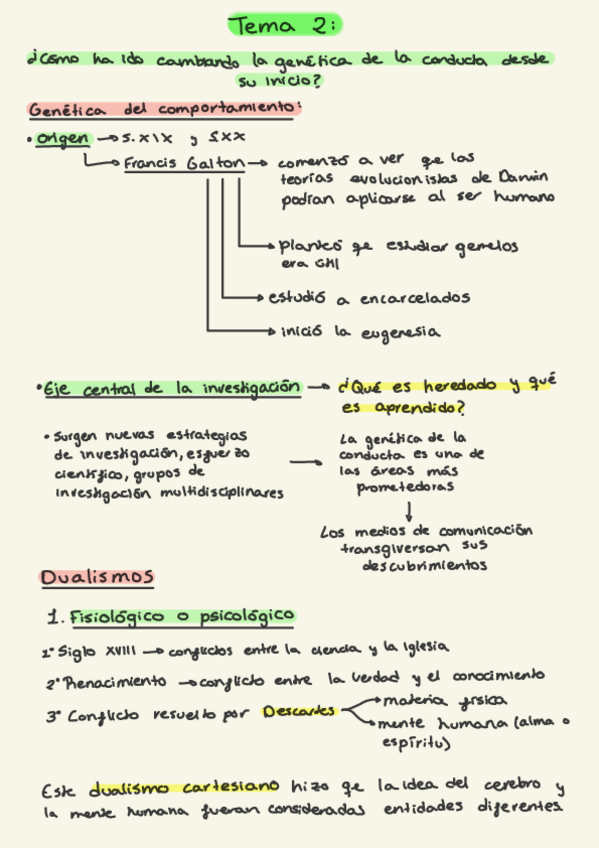 Tema 2:
¿Cómo ha ido cambiando la genética de la conducta desde
su inicio?
Genética del comportamiento:
• Origen → S. XIX y S.XX
Francis Galton → comenzó a ver que las
teorías evolucionistas de Darwin
podían aplicarse al ser humano
planteó qe estudiar gemelos
era útil
estudió a encarcelados
inició la eugenesia
• Eje central de la investigación → ¿Qué es heredado y qué
es aprendido?
• Surgen nuevas estrategias
de investigación, esfuerzo
científico, grupos de
investigación multidisciplinares
La genética de la
conducta es una de
las áreas más
prometedoras
Los medios de comunicación
transgiversan sus
descubrimientos
Dualismos
1. Fisiológico o psicológico
1º Siglo XVIII → conflictos entre la ciencia y la Iglesia
2º Renacimiento → conflicto entre la verdad y el conocimiento
3º Conflicto resuelto por Descartes
materia física
mente humana (alma o
espíritu)
Este dualismo cartesiano hizo qe la idea del cerebro y
la mente humana fueran consideradas entidades diferentes